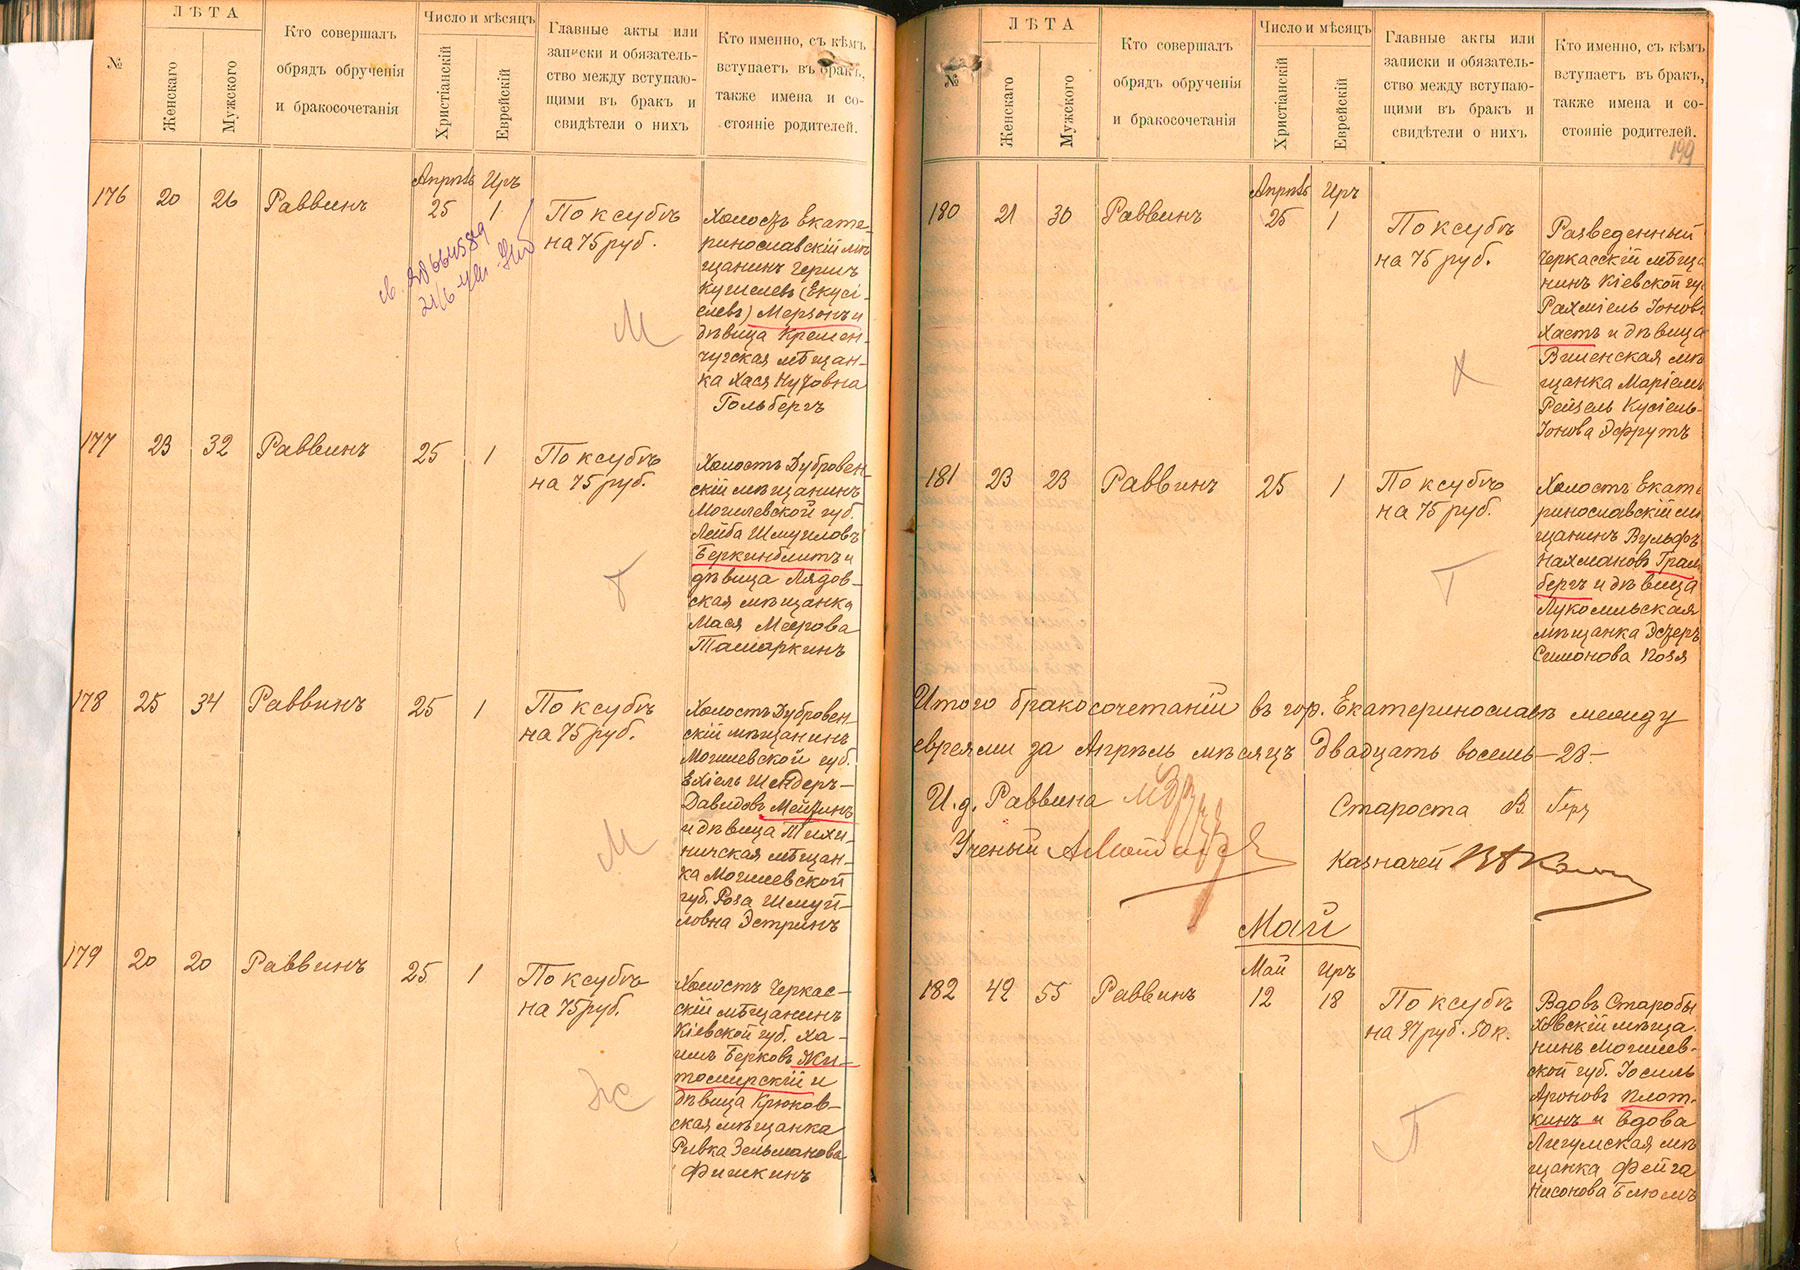 №
ЛѢТА
Женскаго
Мужского
Кто совершалъ
обрядъ обрученія
и бракосочетанія
Число и мѣсяцъ
Христіанскій
Еврейскій
Главные акты или
записки и обязатель-
ство между вступаю-
щими въ бракъ и
свидѣтели о нихъ
Кто именно, съ кѣмъ
вступаетъ въ бракъ,
также имена и со-
стояніе родителей.
176
20
26
Раввинъ
Апрѣль
25
Иръ
1
По ксубѣ
на 75 руб.
Холостъ Екате-
ринославскій мѣ
щанинъ Гершъ
Кушелевъ (Екусі-
елевъ) Мерзонъ и
дѣвица Кремен-
чугская мѣщан-
ка Хася Нуховна
Гольбергъ
21/6
М
177
23
32
Раввинъ
25
1
По ксубѣ
на 75 руб.
Холостъ Дубровен-
скій мѣщанинъ
Могилевской губ.
Лейба Шмуиловъ
Беркинблитъ и
дѣвица Лядов-
ская мѣщанка
Мася Меерова
Тамаркинъ
178
25
34
Раввинъ
25
1
По ксубѣ
на 75 руб.
Холостъ Дубровен-
скій мѣщанинъ
Могилевской губ.
Ехіель Шендеръ-
Давидовъ Мейзлинъ
и дѣвица Тихи-
ничская мѣщан-
ка Могилевской
губ. Роза Шмуй-
ловна Эстринъ
М
179
20
20
Раввинъ
25
1
По ксубѣ
на 75 руб.
Холостъ Черкас-
скій мѣщанинъ
Кіевской губ. Ха-
имъ Берковъ Жи-
томирскій и
дѣвица Крюков-
ская мѣщанка
Ривка Зельманова
Фишкинъ
Ж
№
ЛѢТА
Женскаго
Мужского
Кто совершалъ
обрядъ обрученія
и бракосочетанія
Число и мѣсяцъ
Христіанскій
Еврейскій
Главные акты или
записки и обязатель-
ство между вступаю-
щими въ бракъ и
свидѣтели о нихъ
Кто именно, съ кѣмъ
вступаетъ въ бракъ,
также имена и со-
стояніе родителей.
199
180
21
30
Раввинъ
Апрѣль
25
Иръ
1
По ксубѣ
на 75 руб.
Разведенный
Черкасскій мѣща
нинъ Кіевской гу
Рахміель Іоновъ
Хастъ и дѣвица
Виленская мѣ
щанка Маріемъ
Рейзель Кусіель-
Іонова Эфрутъ
Х
181
23
23
Раввинъ
25
1
По ксубѣ
на 75 руб.
Холостъ Екате
ринославскій мѣ
щанинъ Вульфъ
Нахмановъ Грам
бергъ и дѣвица
Лукомльская
мѣщанка Эстеръ
Симонова Позя
Г
Итого бракосочетаній въ гор. Екатеринославѣ между
евреями за Апрѣль мѣсяцъ двадцать восемь — 28 —
И. д. Раввина
Староста В.
Ученый
Казначей
Май
182
42
55
Раввинъ
Май
12
Иръ
18
По ксубѣ
на 37 руб. 50 к.
Вдовъ Старобы
ховскій мѣща
нинъ Могилев-
ской губ. Іосиль
Ароновъ Плот-
кинъ и вдова
Лигумская мѣ
щанка Фейга
Нисонова Блюмъ
П